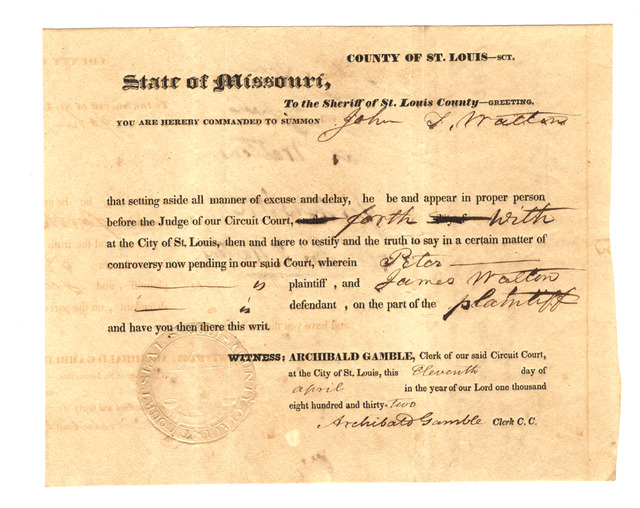 COUNTY OF ST. LOUIS—SCT.
State of Missouri,
To the Sheriff of St. Louis County—GREETING,
YOU ARE HEREBY COMMANDED TO SUMMON John Walton
that setting aside all manner of excuse and delay, he be and appear in proper person
before the Judge of our Circuit Court, forth with
at the City of St. Louis, then and there to testify and the truth to say in a certain matter of
controversy now pending in our said Court, wherein Peter
is plaintiff , and James Walton
is defendant , on the part of the plaintiff
and have you then there this writ.
WITNESS: ARCHIBALD GAMBLE, Clerk of our said Circuit Court,
at the City of St. Louis, this Eleventh day of
april in the year of our Lord one thousand
eight hundred and thirty-two
Archibald Gamble Clerk C. C.